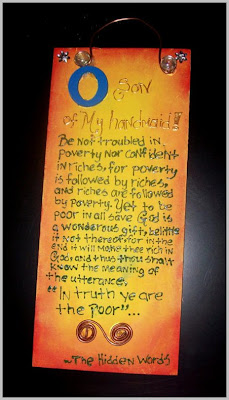 O Son
of My handmaid!
Be not troubled in
poverty nor confident
in riches, for poverty
is followed by riches,
and riches are followed
by poverty. Yet to be
poor in all save God is
a wonderous gift, belittle
it not thereof, for in the
end it will make thee rich in
God, and thus thou shalt
know the meaning of
the utterance,
"In truth ye are
the poor"...
~The Hidden Words